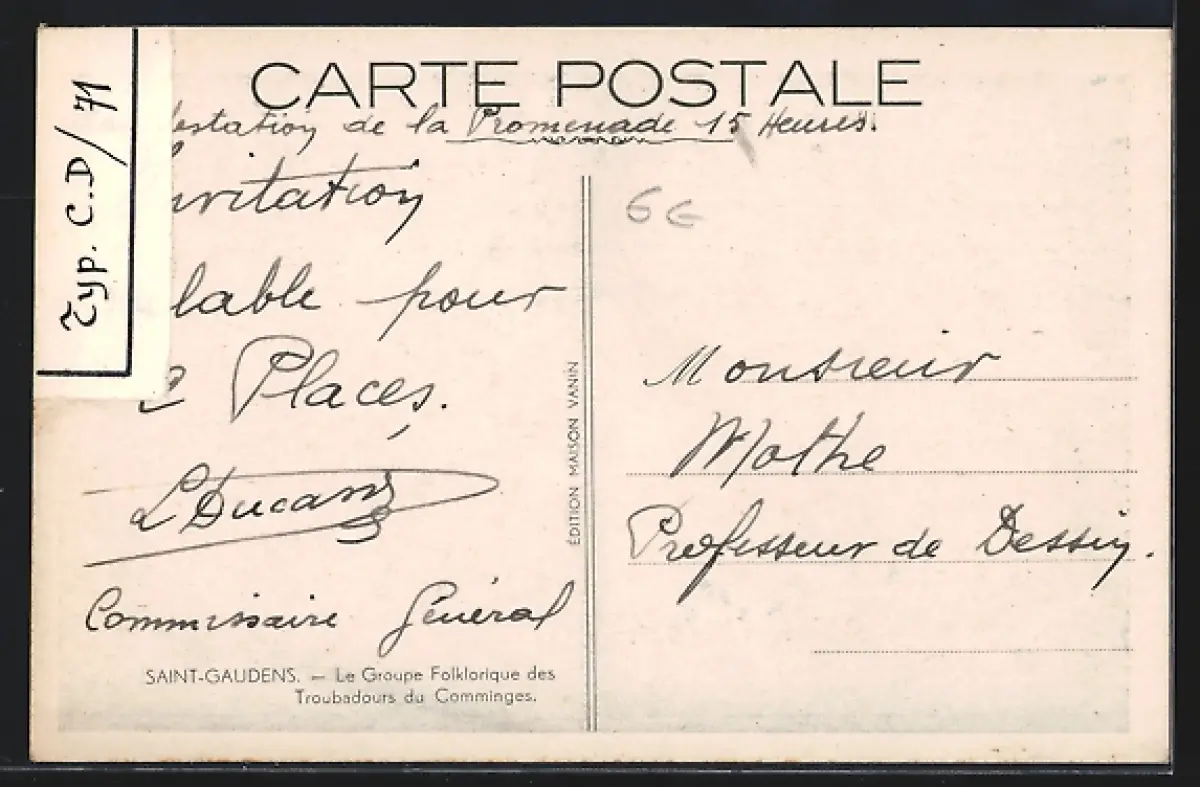 Typ. C.D/71
CARTE POSTALE
festation de la Promenade 15 Heures.
nvitation
lable pour
2 Places.
L Ducans
Commissaire Général
SAINT-GAUDENS. — Le Groupe Folklorique des
Troubadours du Comminges.
ÉDITION MAISON VANIN
6 €
Monsieur
Mothe
Professeur de Dessin.